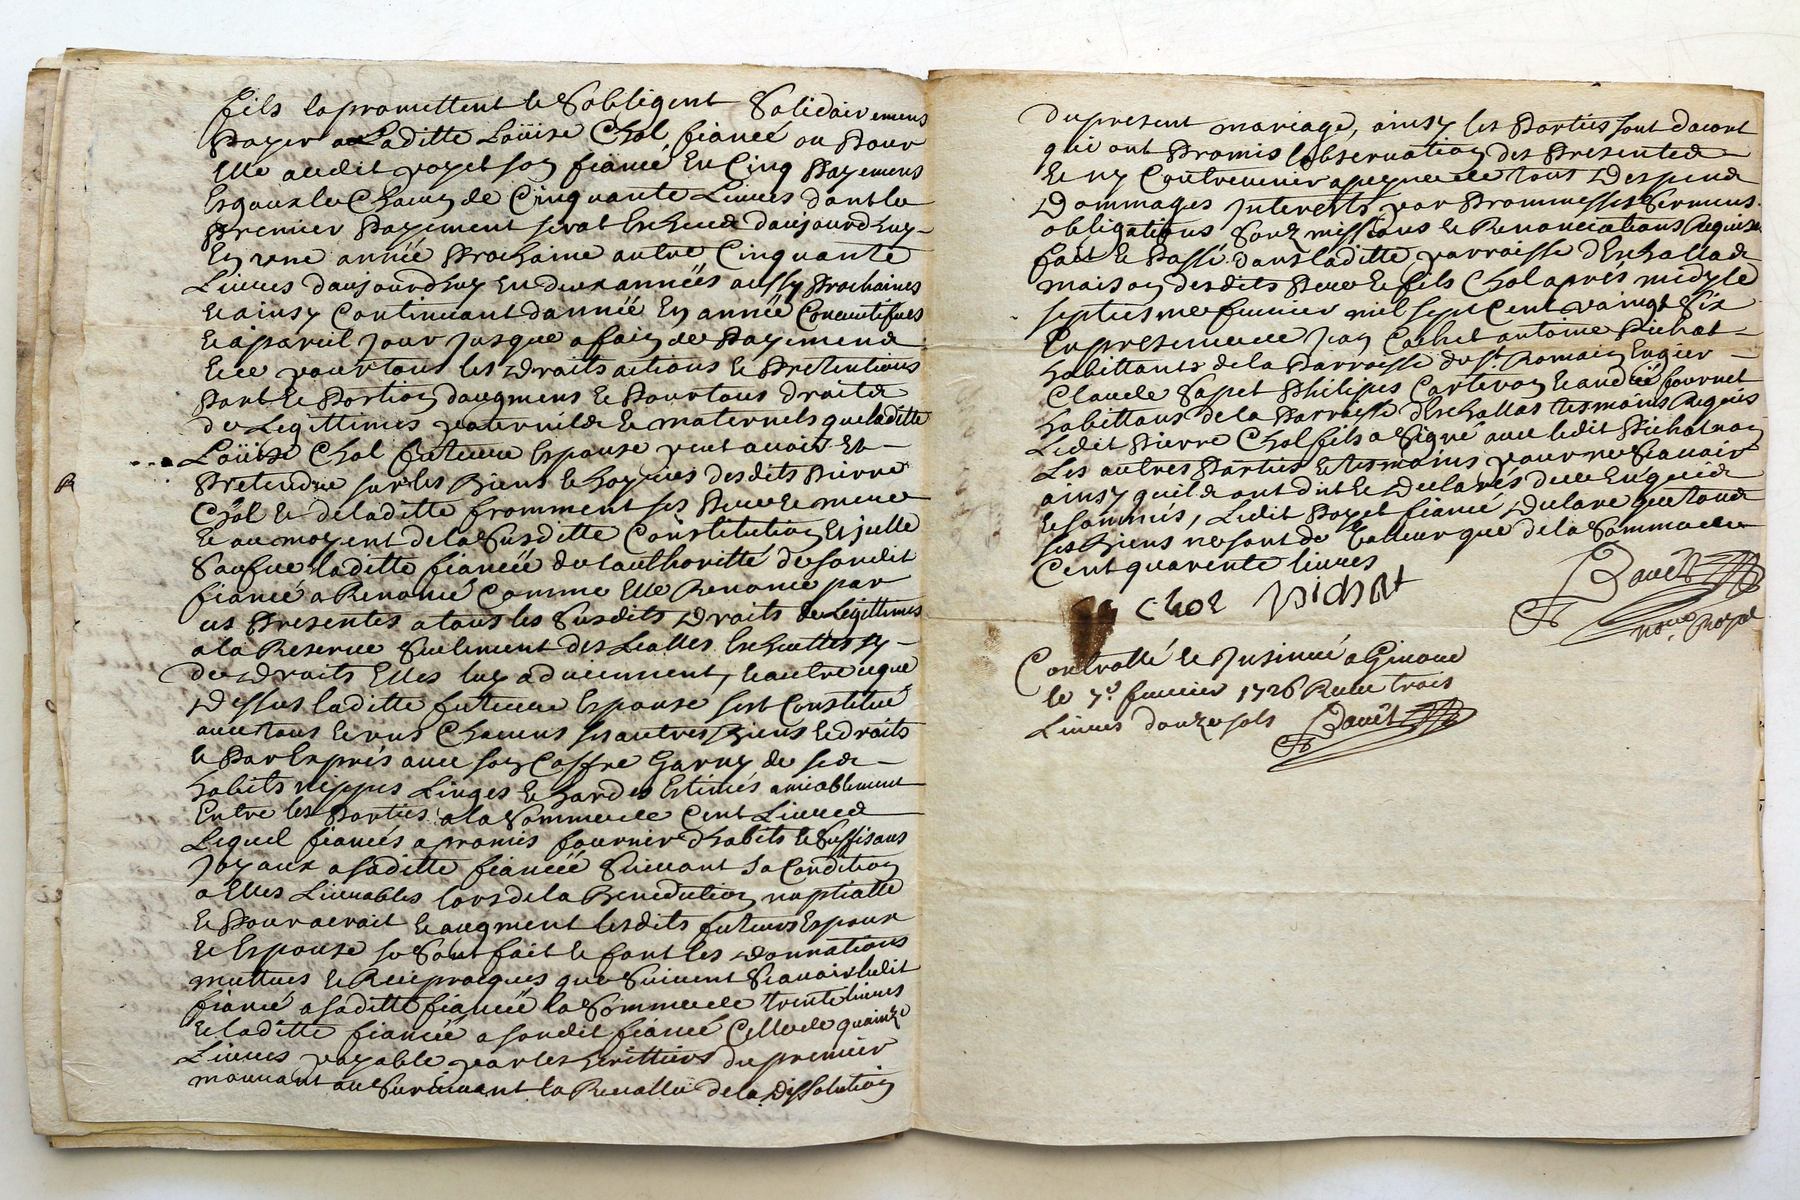 fils la promettent & Sobligent Solidairemens
Payer a Laditte Loüise Chol fiancé ou Pour
Elle audit poyet son fiancé En Cinq Payemens
Esgaux le Chacun de Cinquante Liures dont le
Premier Payement serat Escheue daujourdhuy
En vne année Prochaine autre Cinquante
Liures daujourdhuy En deux années aussy Prochaines
& ainsy Continuant dannée En année Consecutifues
& a pareil Jour Jusque a fain de Payemend
& ce pour tous les droits actions & Pretentions
Part & Portion daugmens & Pour tous droits
de Legittimes paternils & maternels que laditte
Loüise Chol future Espouse peut auoir &
Pretendre sur les Biens & hoyries desdits Pierre
Chol & de laditte fromment ses Pere & mere
& au moyent de la Susditte Constitution Et jcelle
Sauf ue laditte fiancée de lauthoritté de sondit
fiancé a Renoncé Comme Elle Renonce par
ces Presentes a tous les Susdits Droits de Legittimes
a la Reserue Seulement des Laittes Escheuttes sy
de Droits Elles luy aduiennent, & autre que
Dessus laditte future Espouse sest Constitué
auec tous & vns Chacuns ses autres Biens & droits
& Par Exprés auec son Coffre Garny de ses
habits nippes Linges & hardes Estimés amiablement
Entre les Parties a la Somme de Cent Liures
Lequel fiancés a promis fournir dhabits & Suffisans
Joyaux a saditte fiancéé Suiuant sa Condition
a Elles Liurables lors de la Benediction nuptialle
& Pour acroit & augment lesdits futurs Espoux
& Espouse se Sont fait & font les donnations
muttues & Reciproques que Suiuent Scauoir ledit
fiancé a saditte fiancéé la Somme de trente liures
& laditte fiancéé a sondit fiancé Celle de quainze
Liures payable par les herittiers du premier
mourant au Suruiuant la Recallu de la Dissolution
du present mariage, ainsy les Parties sont dacort
qui ont Promis lobseruation des Presentes
& ny Contreuenir a peyne de tous Despend
Dommages Interests par Prommesses Sermens
obligations Soubzmissions & Renonciations Requises
fait & Passé dans laditte parroisse dEschallas
maison desdits Pere & fils Chol aprés midy le
septiesme feurier mil sept Cent vaingt Six
En presence de Jean Cachet antoine Pichat
habittants de la Parroisse de St Romain Engier
Claude Sapet Philipes Carteron & andréé fournet
habittans de la Parroisse dEschallas tesmoins Requis
Ledit Pierre Chol fils a Signé auec ledit Pichat non
Les autres Parties & tesmoins pour ne Scauoir
ainsy quils ont dit & Declarés de ce Enquis
& sommés, Ledit Poyet fiancé Declare que tous
ses Biens ne sont de Valleur que de la Somme de
Cent quarente liures
Chol Pichat
Bauet
nore. Royal
Controllé & Insinué a Giuors
le 7e feurier 1726 Receu trois
Liures douze sols Bauet
R